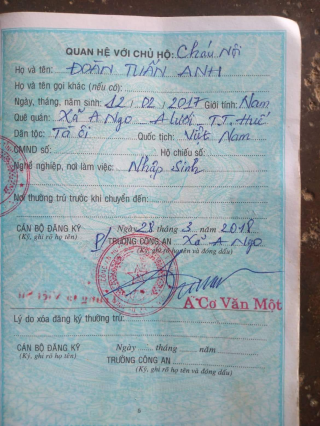 QUAN HỆ VỚI CHỦ HỘ: Cháu Nội
Họ và tên: ĐOÀN TUẤN ANH
Họ và tên gọi khác (nếu có):
Ngày, tháng, năm sinh: 12/02/2017 Giới tính: Nam
Quê quán: Xã A Ngo - A Lưới - T.T. Huế
Dân tộc: Tà ôi Quốc tịch: Việt Nam
CMND số: Hộ chiếu số:
Nghề nghiệp, nơi làm việc: Nhập Sinh
Nơi thường trú trước khi chuyển đến:
Ngày 28 tháng 3 năm 2018
CÁN BỘ ĐĂNG KÝ P/ TRƯỞNG CÔNG AN Xã A Ngo
(Ký, ghi rõ họ tên) (Ký, ghi rõ họ tên và đóng dấu)
A Cơ Văn Một
Lý do xóa đăng ký thường trú:
Ngày ...... tháng ...... năm
CÁN BỘ ĐĂNG KÝ TRƯỞNG CÔNG AN
(Ký, ghi rõ họ tên) (Ký, ghi rõ họ tên và đóng dấu)